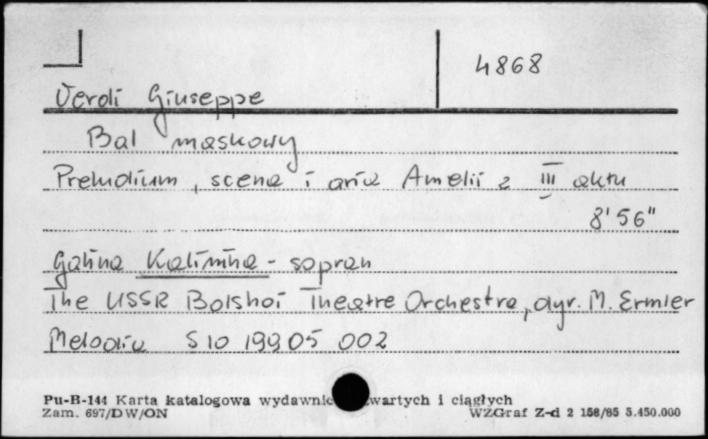 4868
Verdi Giuseppe
Bal maskowy
Preludium, scena i aria Amelii z III aktu
8'56"
Galina Kalinina - sopran
The USSR Bolshoi Theatre Orchestra, dyr. M. Ermler
Melodia S10 19905 002
Pu-B-144 Karta katalogowa wydawnic wartych i ciągłych
Zam. 697/DW/ON WZGraf Z-d 2 158/85 5.450.000